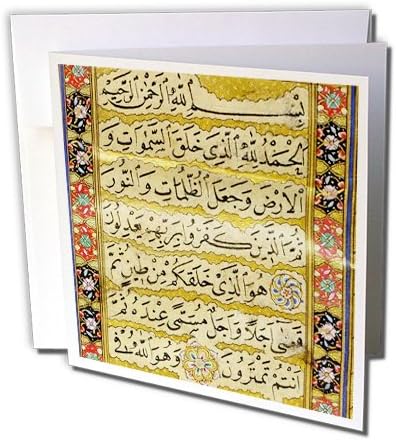 بِسْمِ اللهِ الرَّحْمٰنِ الرَّحِيمِ
اَلْحَمْدُ لِلّٰهِ الَّذِى خَلَقَ السَّمٰوَاتِ وَ
الْاَرْضَ وَجَعَلَ الظُّلُمَاتِ وَالنُّورَ
ثُمَّ الَّذِينَ كَفَرُوا بِرَبِّهِمْ يَعْدِلُونَ
هُوَ الَّذِى خَلَقَكُمْ مِنْ طِينٍ ثُمَّ
قَضٰى اَجَلًا وَاَجَلٌ مُسَمًّى عِنْدَهُ ثُمَّ
اَنْتُمْ تَمْتَرُونَ وَهُوَ اللهُ فِى